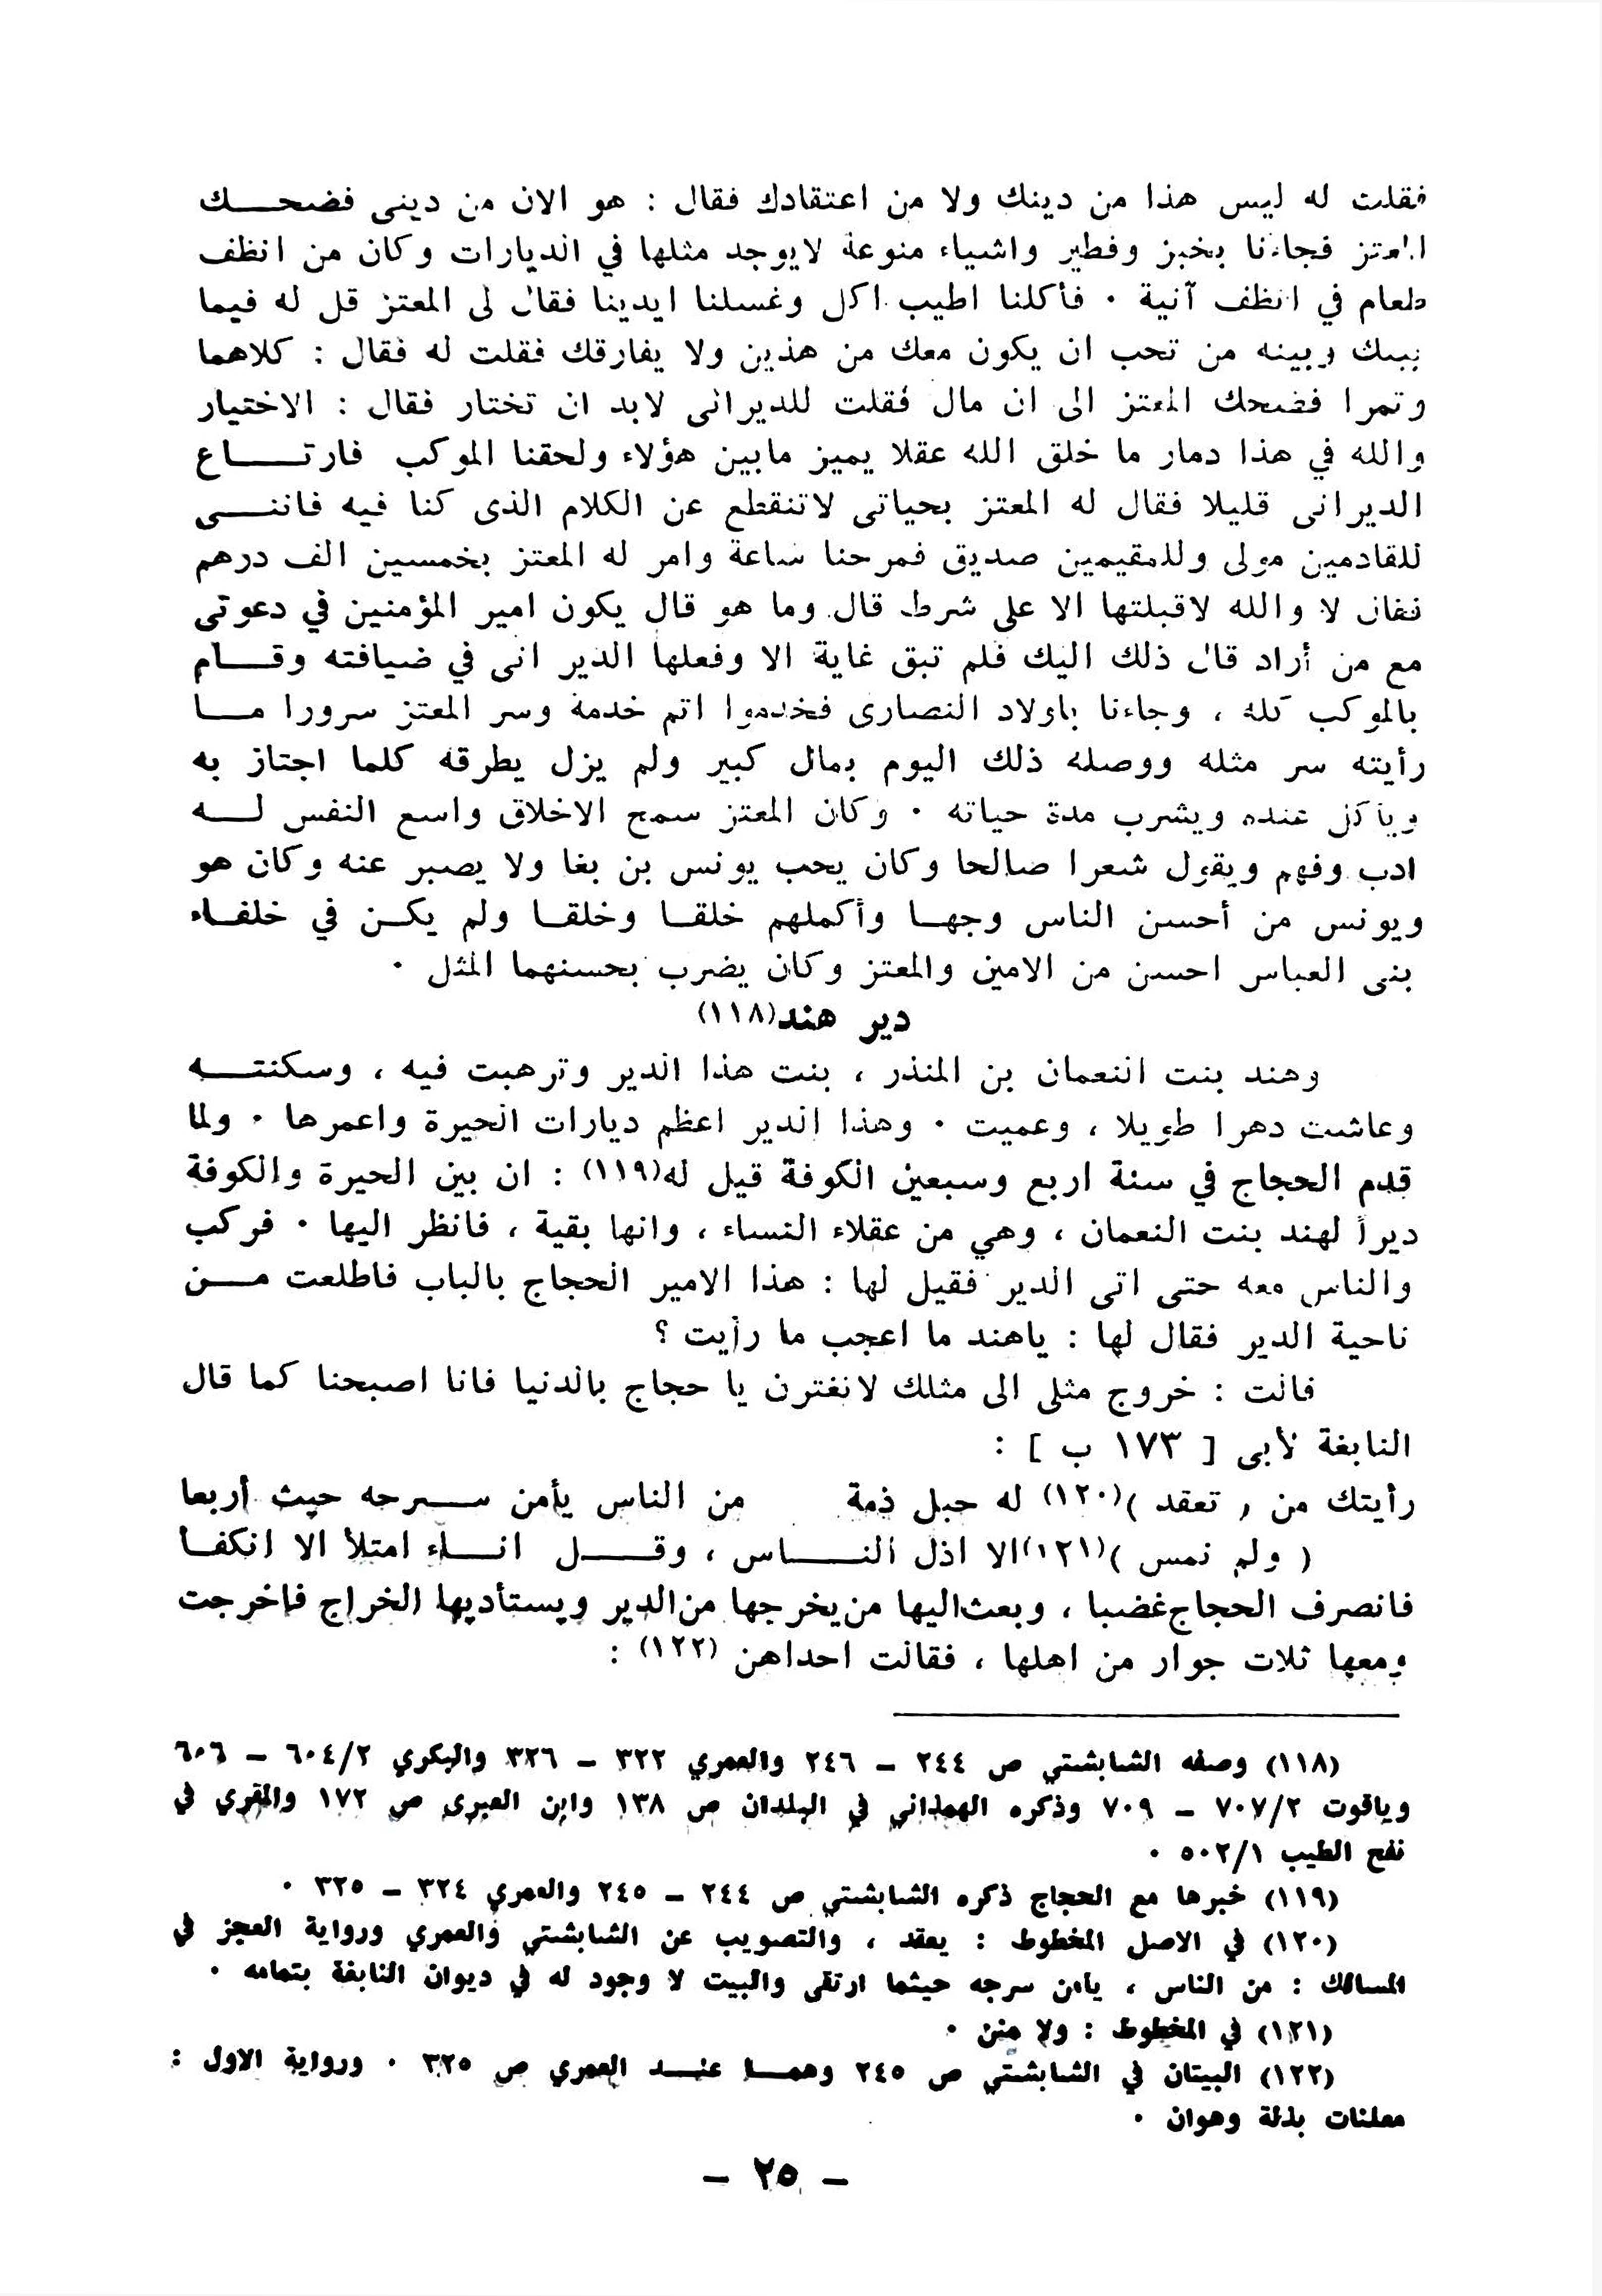 فقلت له ليس هذا من دينك ولا من اعتقادك فقال : هو الان من دينى فضحك
المعتز فجاءنا بخبز وفطير واشياء منوعة لايوجد مثلها في الديارات وكان من انظف
طعام في انظف آنية ٠ فأكلنا اطيب اكل وغسلنا ايدينا فقال لى المعتز قل له فيما
بينك وبينه من تحب ان يكون معك من هذين ولا يفارقك فقلت له فقال : كلاهما
وتمرا فضحك المعتز الى ان مال فقلت للديرانى لابد ان تختار فقال : الاختيار
والله في هذا دمار ما خلق الله عقلا يميز مابين هؤلاء ولحقنا الموكب فارتاع
الديرانى قليلا فقال له المعتز بحياتى لاتنقطع عن الكلام الذى كنا فيه فاننى
للقادمين مولى وللمقيمين صديق فمرحنا ساعة وامر له المعتز بخمسين الف درهم
فقال لا والله لاقبلتها الا على شرط قال وما هو قال يكون امير المؤمنين في دعوتى
مع من أراد قال ذلك اليك فلم تبق غاية الا وفعلها الدير انى في ضيافته وقام
بالموكب كله ، وجاءنا باولاد النصارى فخدموا اتم خدمة وسر المعتز سرورا ما
رأيته سر مثله ووصله ذلك اليوم بمال كبير ولم يزل يطرقه كلما اجتاز به
ويأكل عنده ويشرب مدة حياته ٠ وكان المعتز سمح الاخلاق واسع النفس له
ادب وفهم ويقول شعرا صالحا وكان يحب يونس بن بغا ولا يصبر عنه وكان هو
ويونس من أحسن الناس وجها وأكملهم خلقا وخلقا ولم يكن في خلفاء
بنى العباس احسن من الامين والمعتز وكان يضرب بحسنهما المثل ٠
دير هند(١١٨)
وهند بنت النعمان بن المنذر ، بنت هذا الدير وترهبت فيه ، وسكنته
وعاشت دهرا طويلا ، وعميت ٠ وهذا الدير اعظم ديارات الحيرة واعمرها ٠ ولما
قدم الحجاج في سنة اربع وسبعين الكوفة قيل له(١١٩) : ان بين الحيرة والكوفة
ديرا لهند بنت النعمان ، وهي من عقلاء النساء ، وانها بقية ، فانظر اليها ٠ فركب
والناس معه حتى اتى الدير فقيل لها : هذا الامير الحجاج بالباب فاطلعت من
ناحية الدير فقال لها : ياهند ما اعجب ما رأيت ؟
قالت : خروج مثلى الى مثلك لاتغترن يا حجاج بالدنيا فانا اصبحنا كما قال
النابغة لأبى [ ١٧٣ ب ] :
رأيتك من ( تعقد )(١٢٠) له حبل ذمة من الناس يأمن سرحه حيث أربعا
( ولم نمس )(١٢١)الا اذل الناس ، وقل اناء امتلأ الا انكفا
فانصرف الحجاج غضبا ، وبعث اليها من يخرجها من الدير ويستأديها الخراج فاخرجت
ومعها ثلاث جوار من اهلها ، فقالت احداهن (١٢٢) :
(١١٨) وصفه الشابشتي ص ٢٤٤ – ٢٤٦ والعمري ٣٢٢ – ٣٢٦ والبكري ٦٠٤/٢ – ٦٠٦
وياقوت ٧٠٧/٢ – ٧٠٩ وذكره الهمذاني في البلدان ص ١٣٨ وابن العبرى ص ١٧٢ والمقري في
نفح الطيب ٥٠٢/١ ٠
(١١٩) خبرها مع الحجاج ذكره الشابشتي ص ٢٤٤ – ٢٤٥ والعمري ٣٢٤ – ٣٢٥ ٠
(١٢٠) في الاصل المخطوط : يعقد ، والتصويب عن الشابشتي والعمري ورواية العجز في
المسالك : من الناس ، يأمن سرجه حيثما ارتقى والبيت لا وجود له في ديوان النابغة بتمامه ٠
(١٢١) في المخطوط : ولا
(١٢٢) البيتان في الشابشتي ص ٢٤٥ وهما عند العمري ص ٣٢٥ ٠ ورواية الاول :
معلنات بذلة وهوان ٠
– ٢٥ –